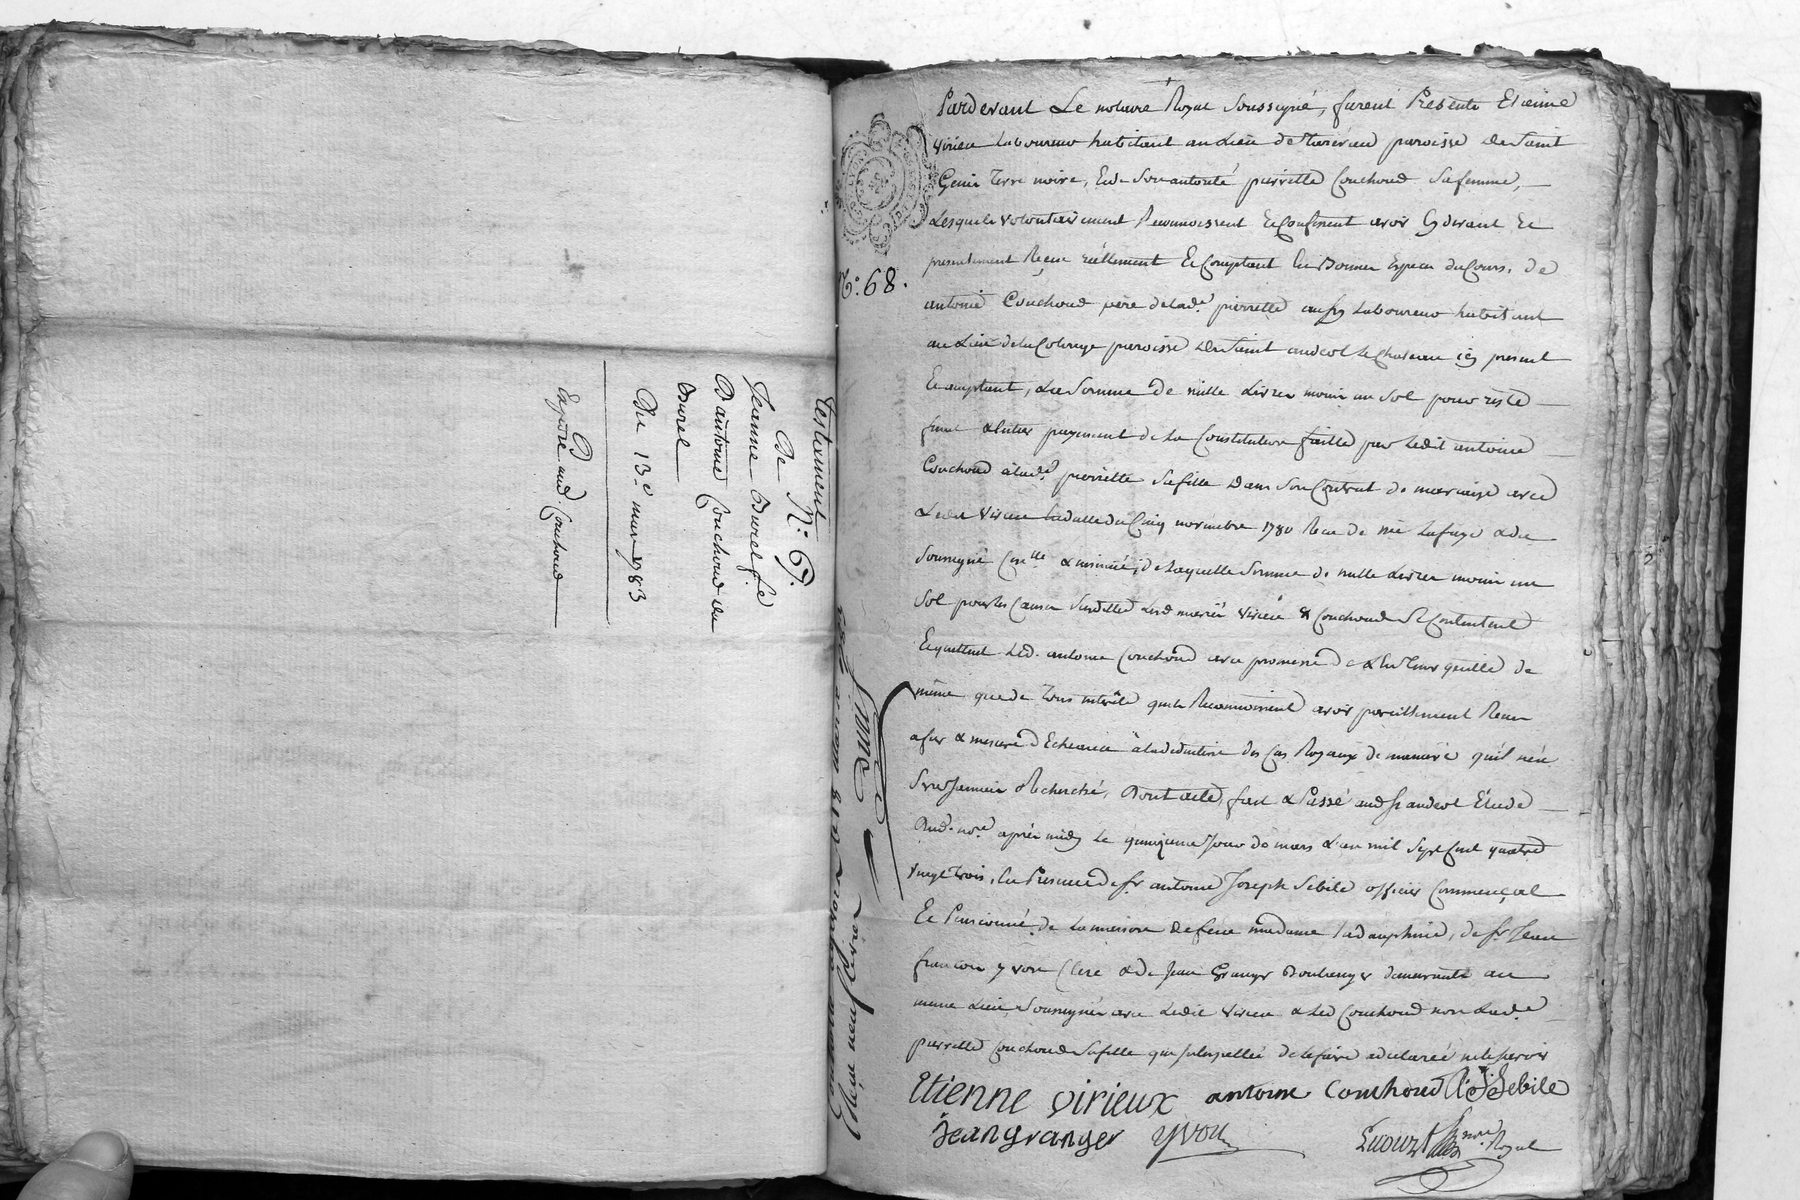 Testament
De N.º 69.
Jeanne Burel f.e
D'antoine Couchoud
Burel
Du 13.e mars 1783
Expedié aud Couchoud
N.º 68.
Pardevant Le notaire Royal Soussigné, furent Presents Etienne
virieu Laboureur habitant au Lieu de paroisse de Saint
Genis terre noire, Et de Son autorité pierrette Couchoud Safemme,
Lesquels volontairement Reconnoissent Et Confessent avoir Cy devant Et
presentement Reçeu réellement Et Comptant En Bonnes Espeses du Cours, de
antoine Couchoud père de lad.e pierrette aussy Laboureur habitant
au Lieu de la paroisse de Saint andeol le Chateau icy present
Et acceptant, La Somme de mille Livres moins un Sol pour reste
final & entier payement de La Constitution faitte par Ledit antoine
Couchoud à lad.e pierrette Safille Dans Son Contrat de mariage avec
Ledit Virieu du Cinq novembre 1780 Recu de me Lafay & du
Soussigné Con.lle & insinué; de Laquelle Somme de mille Livres moins un
Sol pour les Causes Susdittes Lesd mariés virieu & Couchoud Se Contentent
Et quittent Led. antoine Couchoud avec promesse de L'en tenir quitte de
même que de tous interêts qu'ils Reconnoissent avoir pareillement Receu
a fur & mesure d'Echeance à la deduction des Cas Royaux de maniere qu'il n'en
Sera Jamais Recherché, Dont acte, fait & Passé aud St andeol Etude
Dud. no.re après midy Le quinzieme Jour de mars L'an mil Sept Cent quatre
vingt trois, En Presence de Sr antoine Joseph Sebile officier Commençal
Et Pensionné de La maison de feüe madame la dauphine, de Sr Jean
francois yvon Clerc & de Jean Granger Boulanger demeurants au
meme Lieu Soussignés avec Ledit virieu & Led Couchoud non Lad.e
pierrette Couchoud Safille qui interpellée de le faire a declarée ne le Sçavoir
Etienne virieux antoine Couchoud A: J: Sebile
Jean granger yvon
no.re Royal